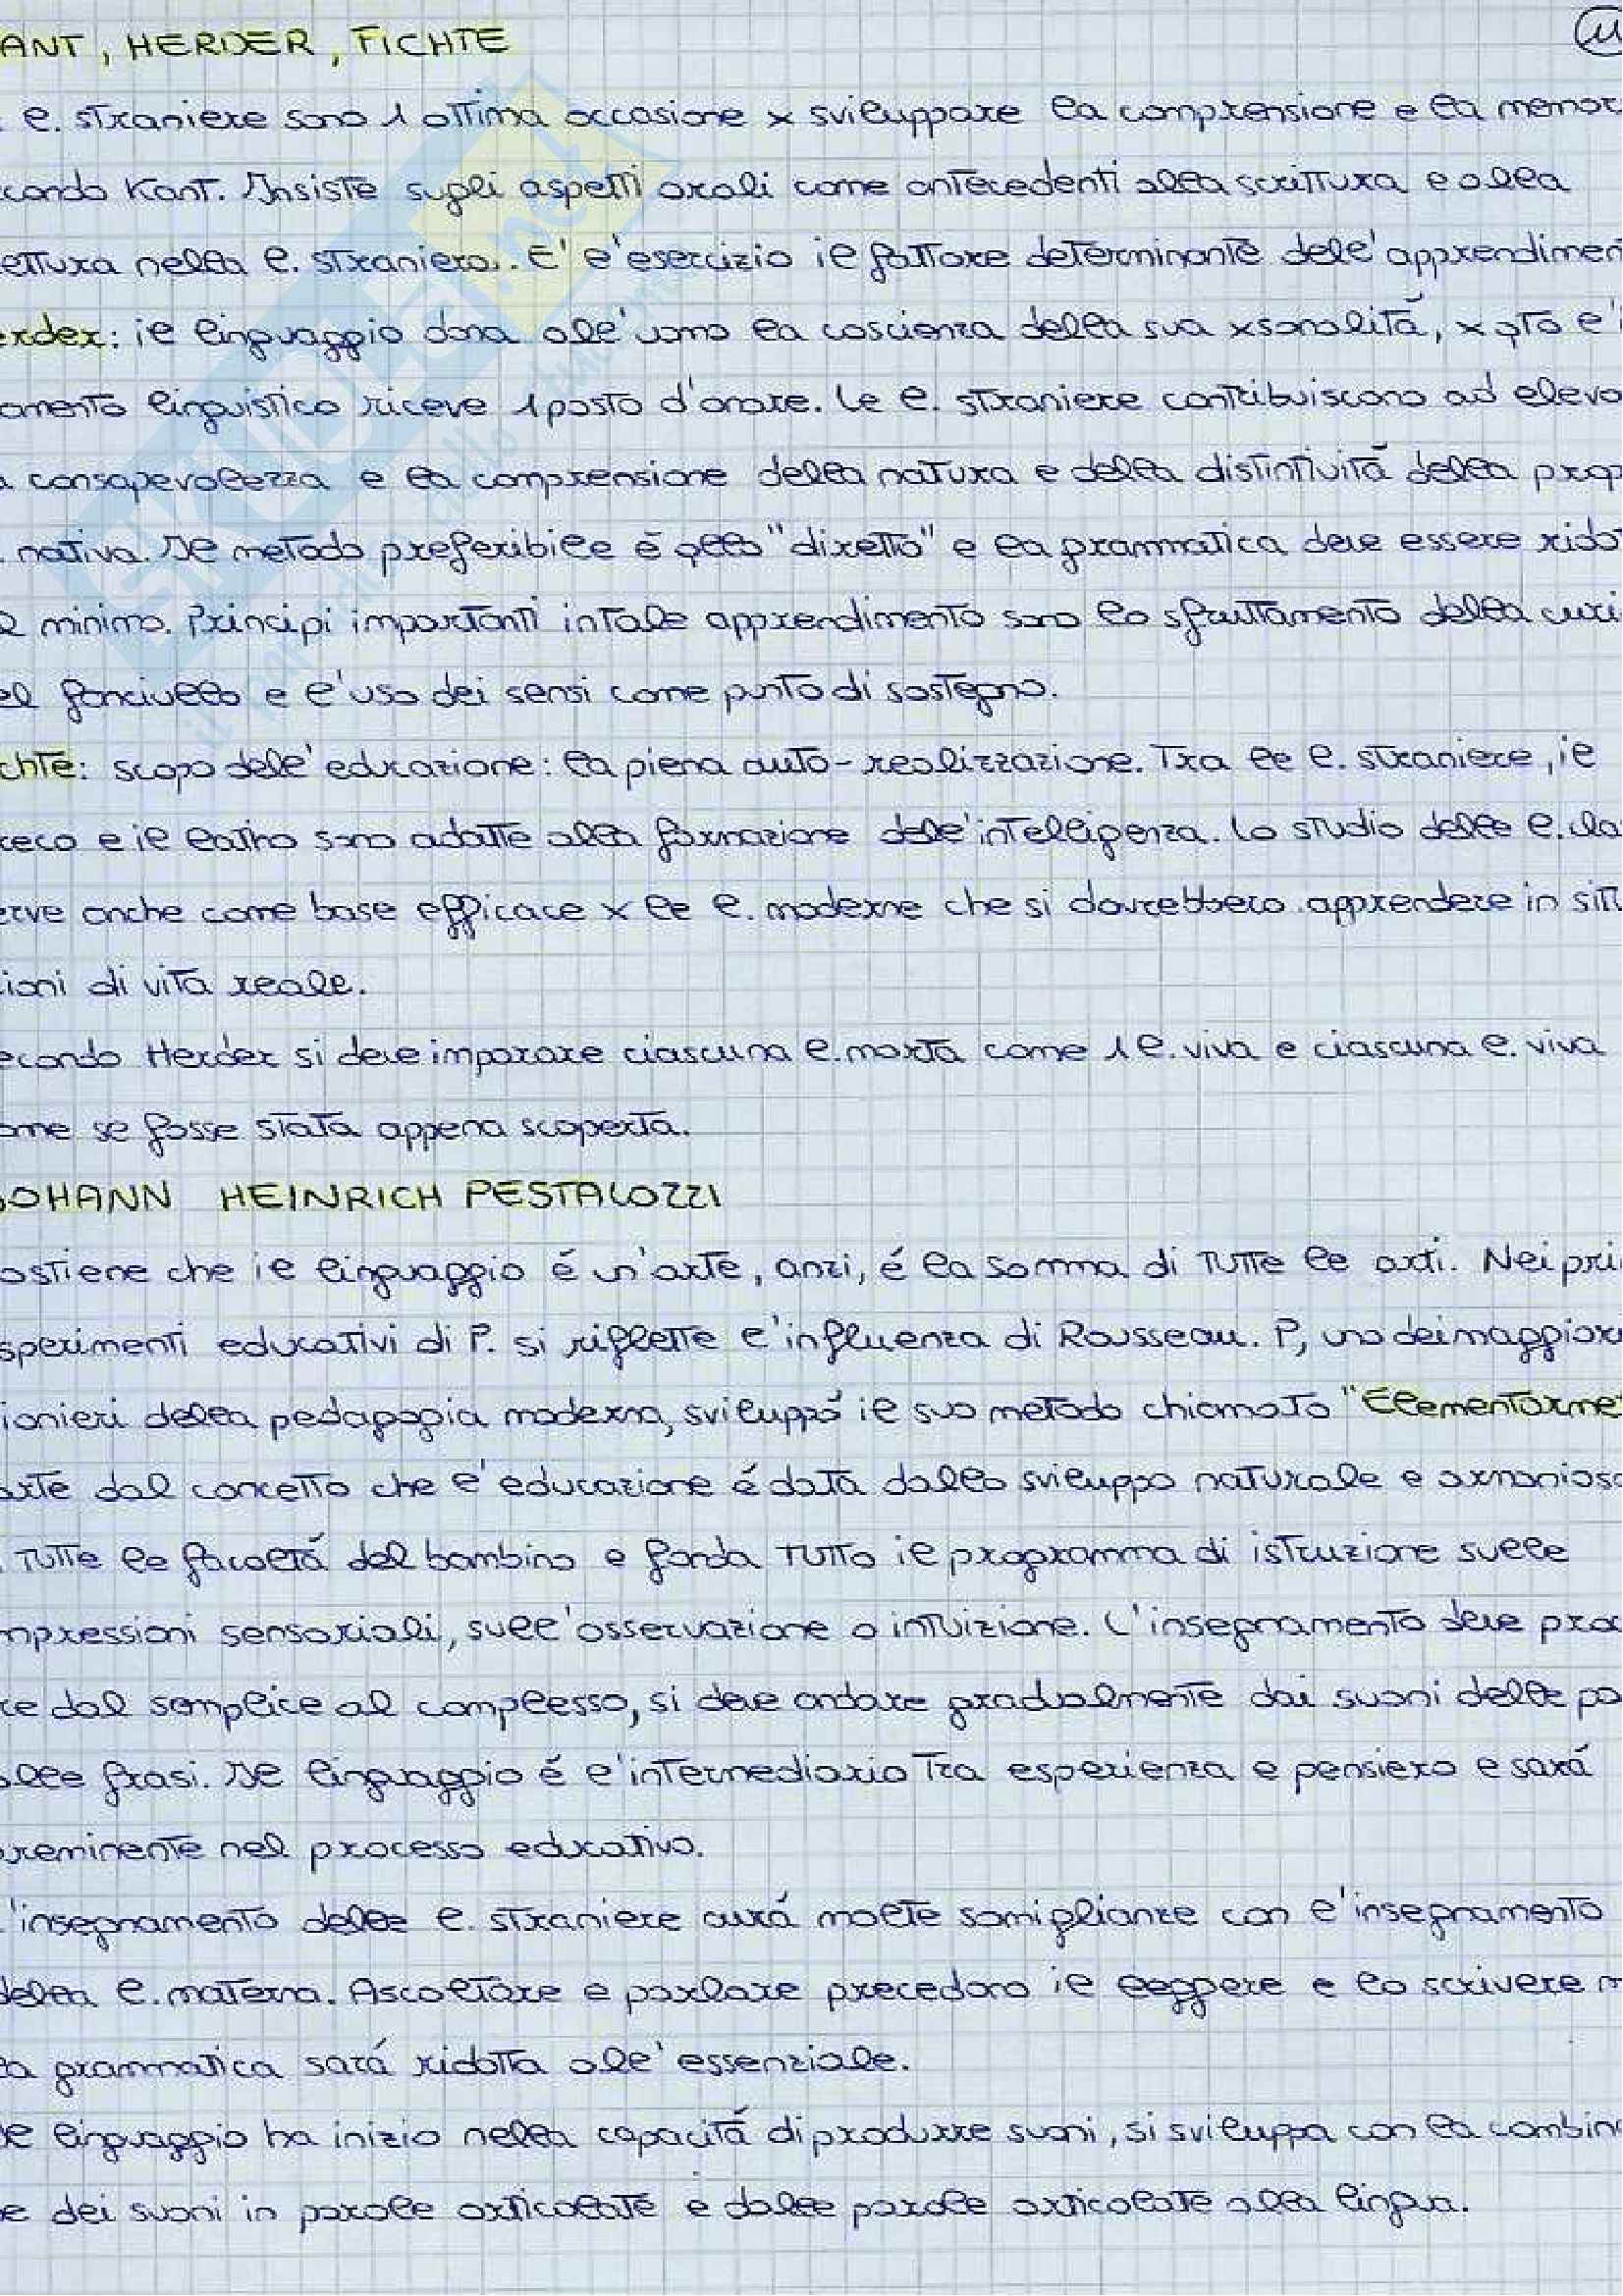 ANT, HERDER, FICHTE
l. straniere sono 1 ottima occasione x sviluppare la comprensione e la memor
condo Kant. Insiste sugli aspetti orali come antecedenti alla scrittura e alla
ettura nella l. straniera. E' l'esercizio il fattore determinante dell'apprendimen
erder: il linguaggio dona all'uomo la coscienza della sua xsonalità, x qto l'i
amento linguistico riceve 1 posto d'onore. Le l. straniere contribuiscono ad eleva
a consapevolezza e la comprensione della natura e della distintività della prop
nativa. Il metodo preferibile é qllo "diretto" e la grammatica deve essere ridot
l minimo. Principi importanti in tale apprendimento sono lo sfruttamento della curi
el fanciullo e l'uso dei sensi come punto di sostegno.
chte: scopo dell'educazione: la piena auto-realizzazione. Tra le l. straniere, il
reco e il latino sono adatte alla formazione dell'intelligenza. Lo studio delle l. cla
erve anche come base efficace x le l. moderne che si dovrebbero apprendere in sit
ioni di vita reale.
econdo Herder si deve imparare ciascuna l. morta come 1 l. viva e ciascuna l. viva
ome se fosse stata appena scoperta.
JOHANN HEINRICH PESTALOZZI
ostiene che il linguaggio é un'arte, anzi, é la somma di tutte le arti. Nei pri
sperimenti educativi di P. si riflette l'influenza di Rousseau. P, uno dei maggiori
ionieri della pedagogia moderna, sviluppó il suo metodo chiamato "Elementarme
arte dal concetto che l'educazione é data dallo sviluppo naturale e armonioso
tutte le facoltá del bambino e fonda tutto il programma di istruzione sulle
mpressioni sensoriali, sull'osservazione o intuizione. L'insegnamento deve proc
re dal semplice al complesso, si deve andare gradualmente dai suoni delle pa
alle frasi. Il linguaggio é l'intermediario tra esperienza e pensiero e sará
preminente nel processo educativo.
l'insegnamento delle l. straniere avrá molte somiglianze con l'insegnamento
della l. materna. Ascoltare e parlare precedono il leggere e lo scrivere m
la grammatica sará ridotta all'essenziale.
Il linguaggio ha inizio nella capacitá di produrre suoni, si sviluppa con la combin
e dei suoni in parole articolate e dalle parole articolate alla lingua.
SKUOLA.net